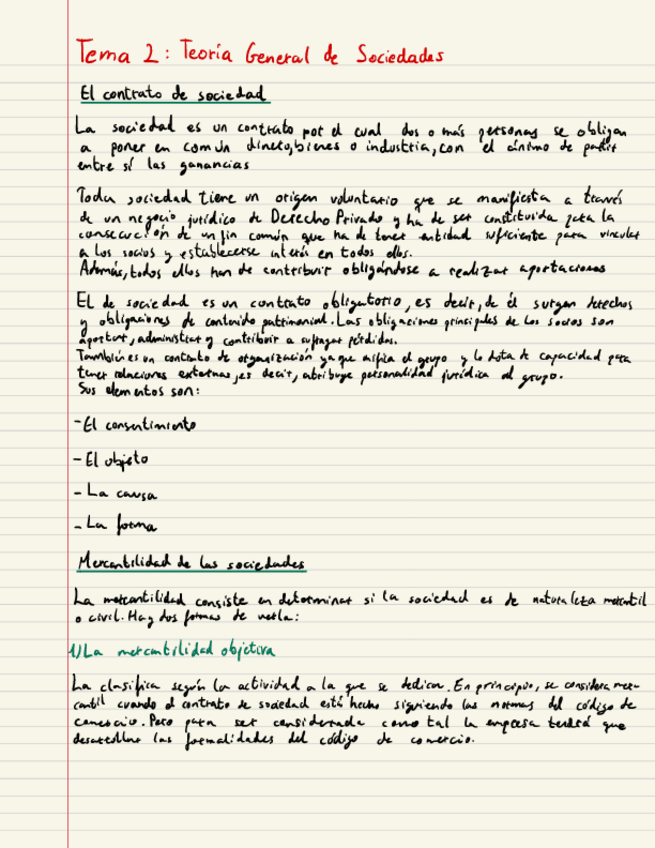 Tema 2: Teoría General de Sociedades
El contrato de sociedad
La sociedad es un contrato por el cual dos o más personas se obligan
a poner en común dinero, bienes o industria, con el ánimo de partir
entre sí las ganancias
Toda sociedad tiene un origen voluntario que se manifiesta a través
de un negocio jurídico de Derecho Privado y ha de ser constituida para la
consecución de un fin común que ha de tener entidad suficiente para vincular
a los socios y establecerse interés en todos ellos.
Además, todos ellos han de contribuir obligándose a realizar aportaciones
El de sociedad es un contrato obligatorio, es decir, de él surgen derechos
y obligaciones de contenido patrimonial. Las obligaciones principales de los socios son
aportar, administrar y contribuir a sufragar pérdidas.
También es un contrato de organización ya que unifica el grupo y lo dota de capacidad para
tener relaciones externas, es decir, atribuye personalidad jurídica al grupo.
Sus elementos son:
- El consentimiento
- El objeto
- La causa
- La forma
Mercantilidad de las sociedades
La mercantilidad consiste en determinar si la sociedad es de naturaleza mercantil
o civil. Hay dos formas de verla:
1) La mercantilidad objetiva
La clasifica según la actividad a la que se dedican. En principio, se considera mer-
cantil cuando el contrato de sociedad está hecho siguiendo las normas del código de
comercio. Pero para ser considerada como tal la empresa tendrá que
desarrollar las formalidades del código de comercio.